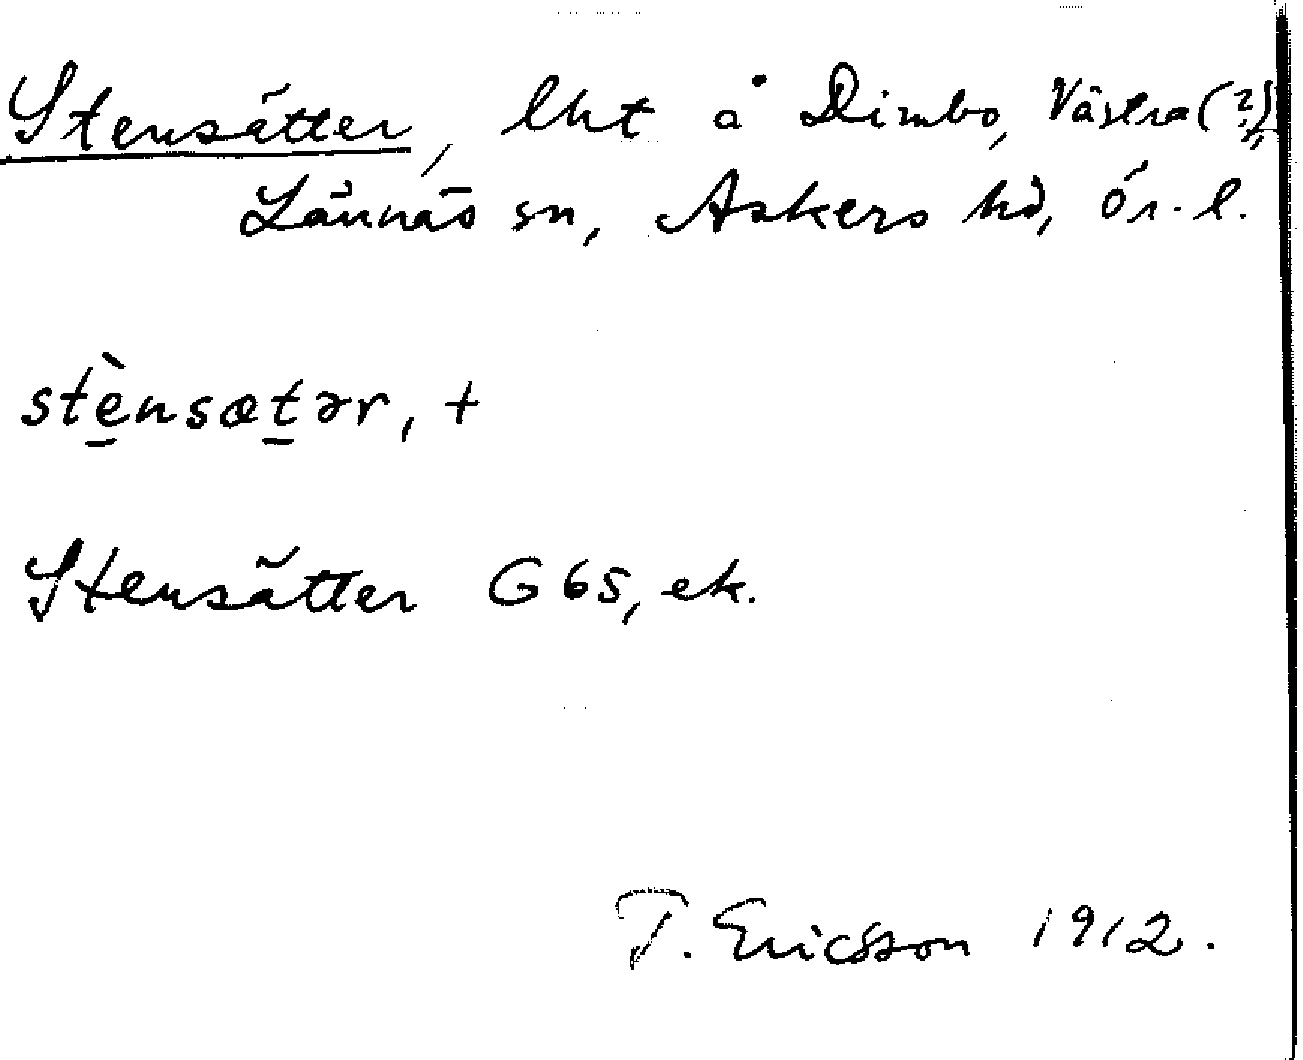 Stensätter, lht å Dimbo, Västra (?),
Lännäs sn, Askers hd, Ör. l.
stè̱nsæṯər, +
Stensätter G 65, ek.
T. Ericsson 1912.